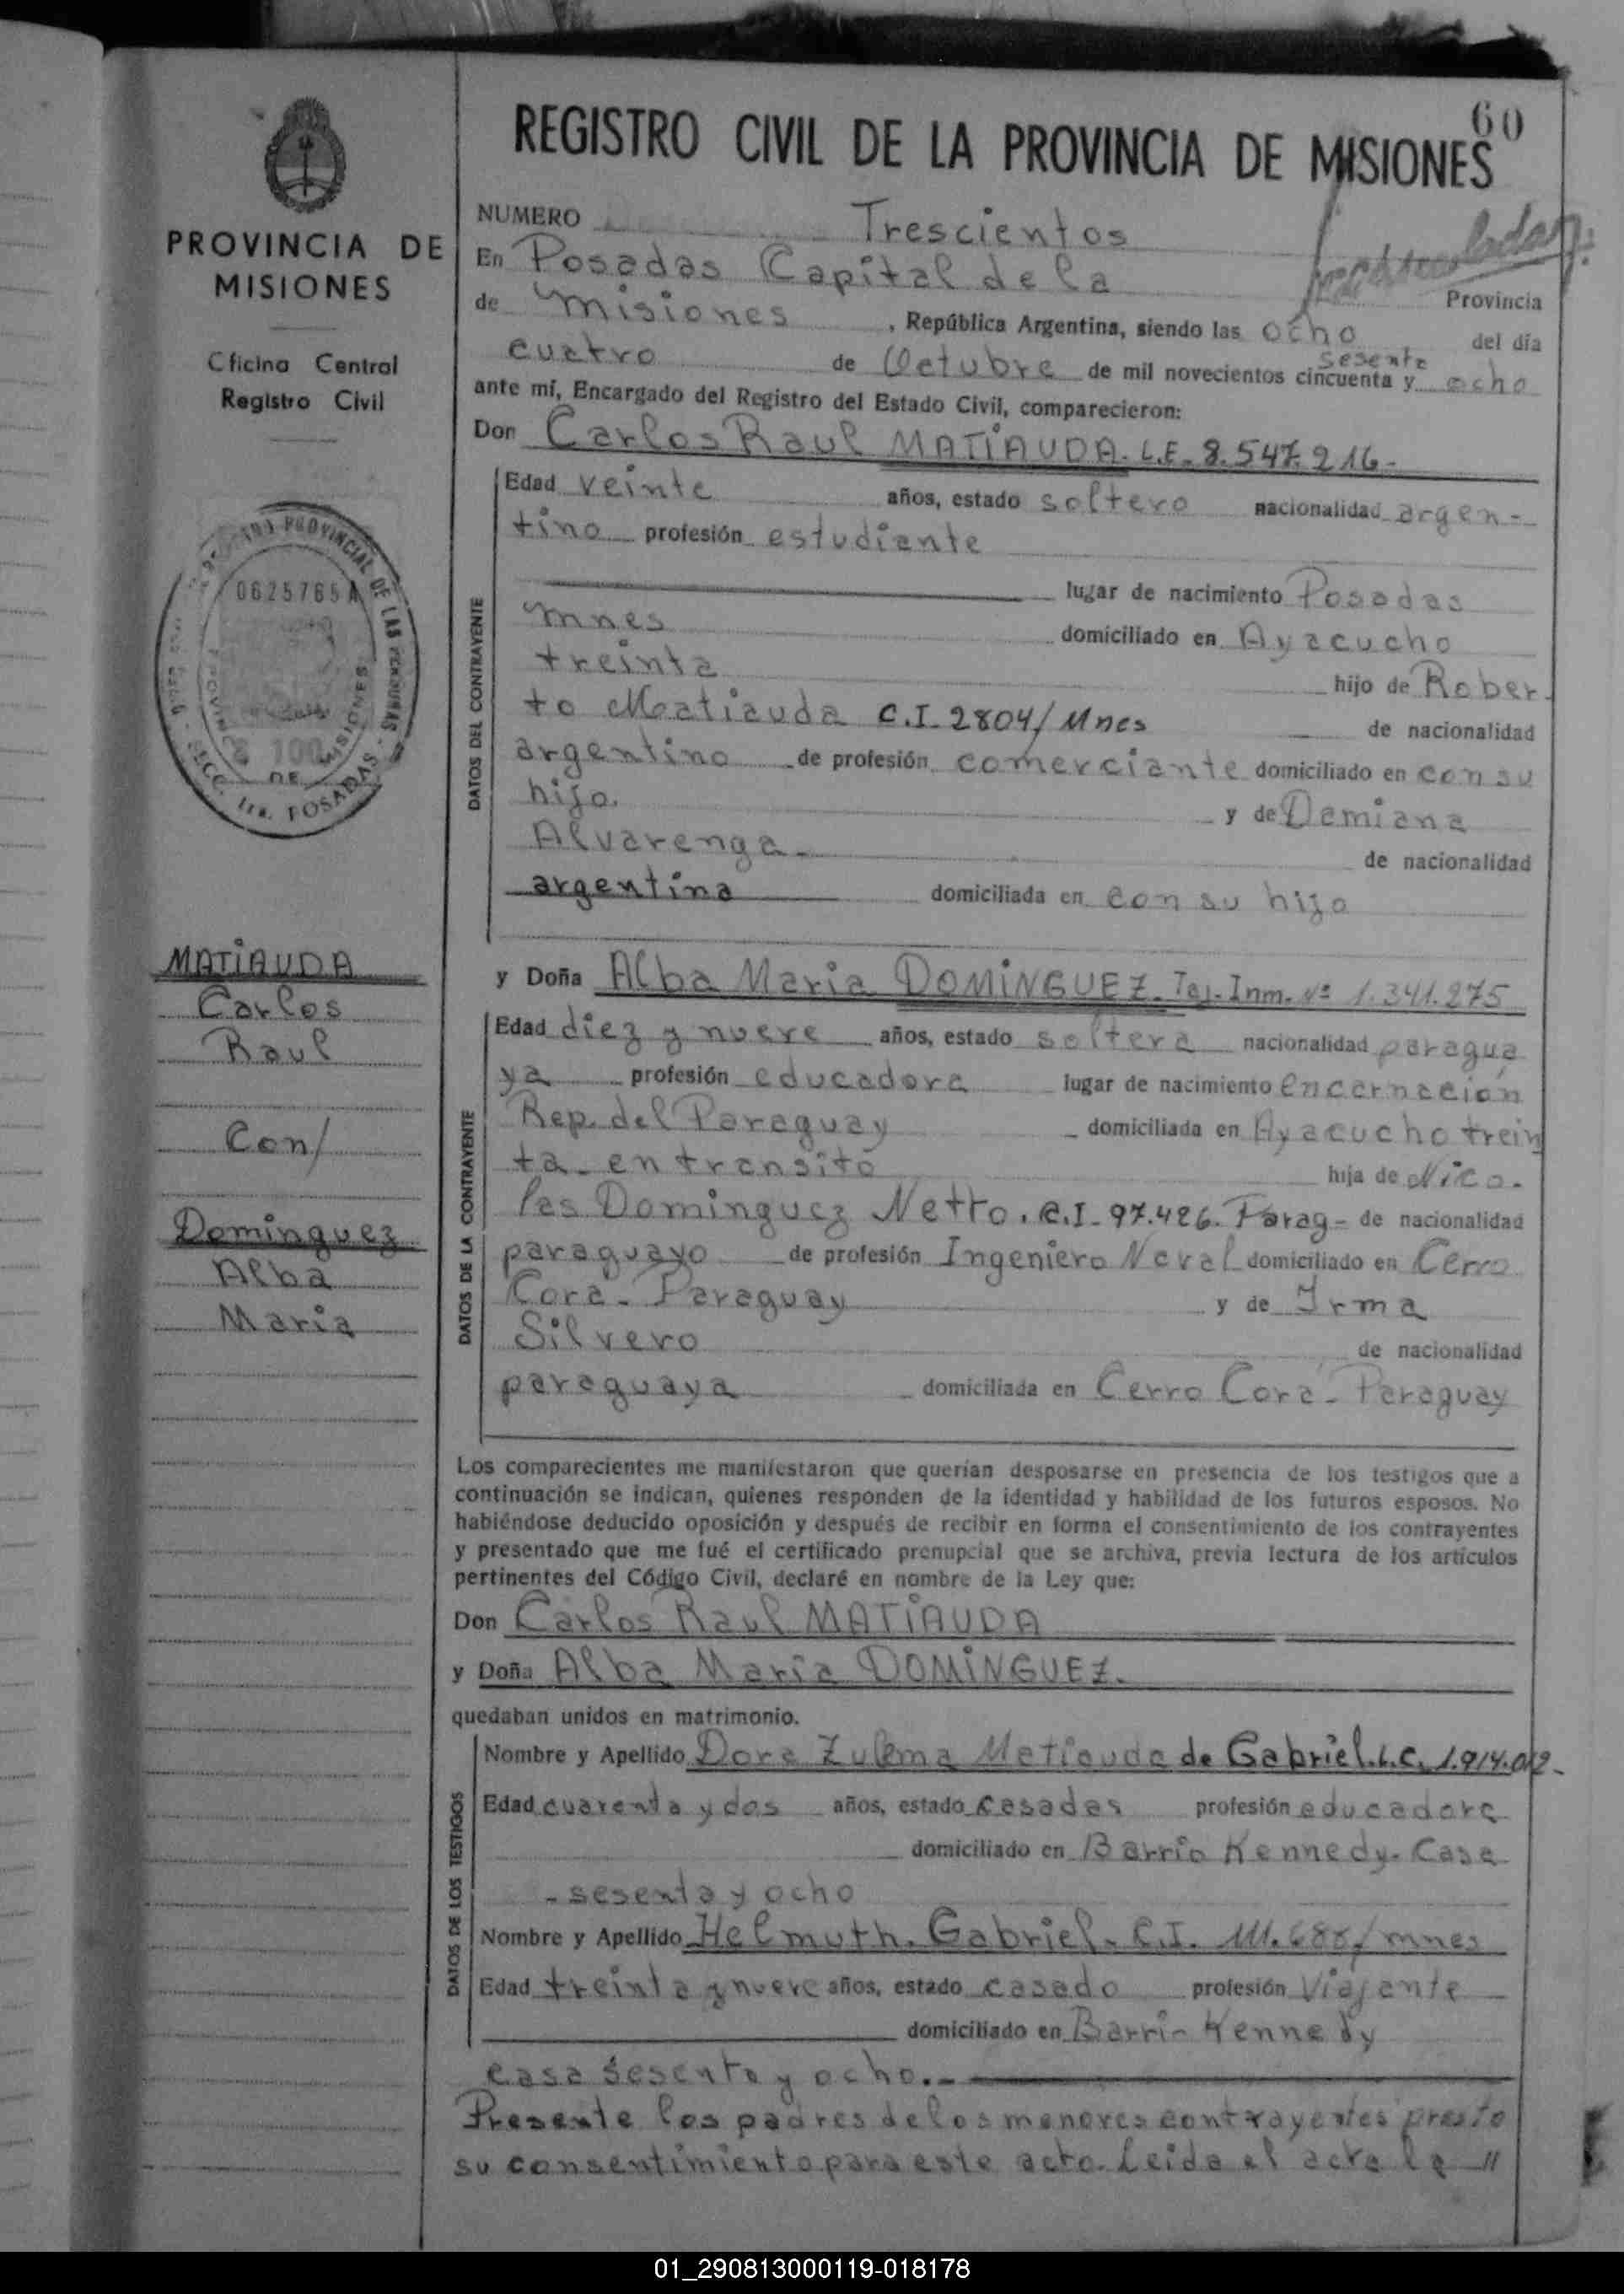 60
REGISTRO CIVIL DE LA PROVINCIA DE MISIONES
PROVINCIA DE
MISIONES
Oficina Central
Registro Civil
0625765 A
$ 100
MATIAUDA
Carlos
Raul
Con/
Dominguez
Alba
Maria
NUMERO Trescientos
En Posadas Capital de la Provincia
de Misiones, República Argentina, siendo las ocho del día
cuatro de Octubre de mil novecientos cincuenta y sesenta ocho
ante mí, Encargado del Registro del Estado Civil, comparecieron:
Don Carlos Raul MATIAUDA. L.E. 8.547.216.-
DATOS DEL CONTRAYENTE
Edad veinte años, estado soltero nacionalidad argen-
tino profesión estudiante
lugar de nacimiento Posadas
mnes domiciliado en Ayacucho
treinta hijo de Rober-
to Matiauda C.I. 2804/Mnes de nacionalidad
argentino de profesión comerciante domiciliado en con su
hijo. y de Damiana
Alvarenga.- de nacionalidad
argentina domiciliada en con su hijo
y Doña Alba Maria DOMINGUEZ. Taj. Inm. Nº 1.341.275
DATOS DE LA CONTRAYENTE
Edad diez y nueve años, estado soltera nacionalidad paragua
ya profesión educadora lugar de nacimiento encarnación
Rep. del Paraguay domiciliada en Ayacucho trein
ta- en transito hija de Nico-
las Dominguez Netto. C.I. 97.426. Parag- de nacionalidad
paraguayo de profesión Ingeniero Naval domiciliado en Cerro
Cora- Paraguay y de Irma
Silvero de nacionalidad
paraguaya domiciliada en Cerro Cora- Paraguay
Los comparecientes me manifestaron que querían desposarse en presencia de los testigos que a
continuación se indican, quienes responden de la identidad y habilidad de los futuros esposos. No
habiéndose deducido oposición y después de recibir en forma el consentimiento de los contrayentes
y presentado que me fué el certificado prenupcial que se archiva, previa lectura de los artículos
pertinentes del Código Civil, declaré en nombre de la Ley que:
Don Carlos Raul MATIAUDA
y Doña Alba Maria DOMINGUEZ.
quedaban unidos en matrimonio.
DATOS DE LOS TESTIGOS
Nombre y Apellido Dora Zulema Matiauda de Gabriel. L.C. 1.914.012-
Edad cuarenta y dos años, estado casadas profesión educadora
domiciliado en Barrio Kennedy. Casa
- sesenta y ocho
Nombre y Apellido Helmuth. Gabriel- C.I. 111.688/mnes
Edad treinta y nueve años, estado casado profesión Viajante
domiciliado en Barrio Kennedy
casa sesenta y ocho.-
Presente los padres de los menores contrayentes presto
su consentimiento para este acto. Leida el acta la //
01_290813000119-018178